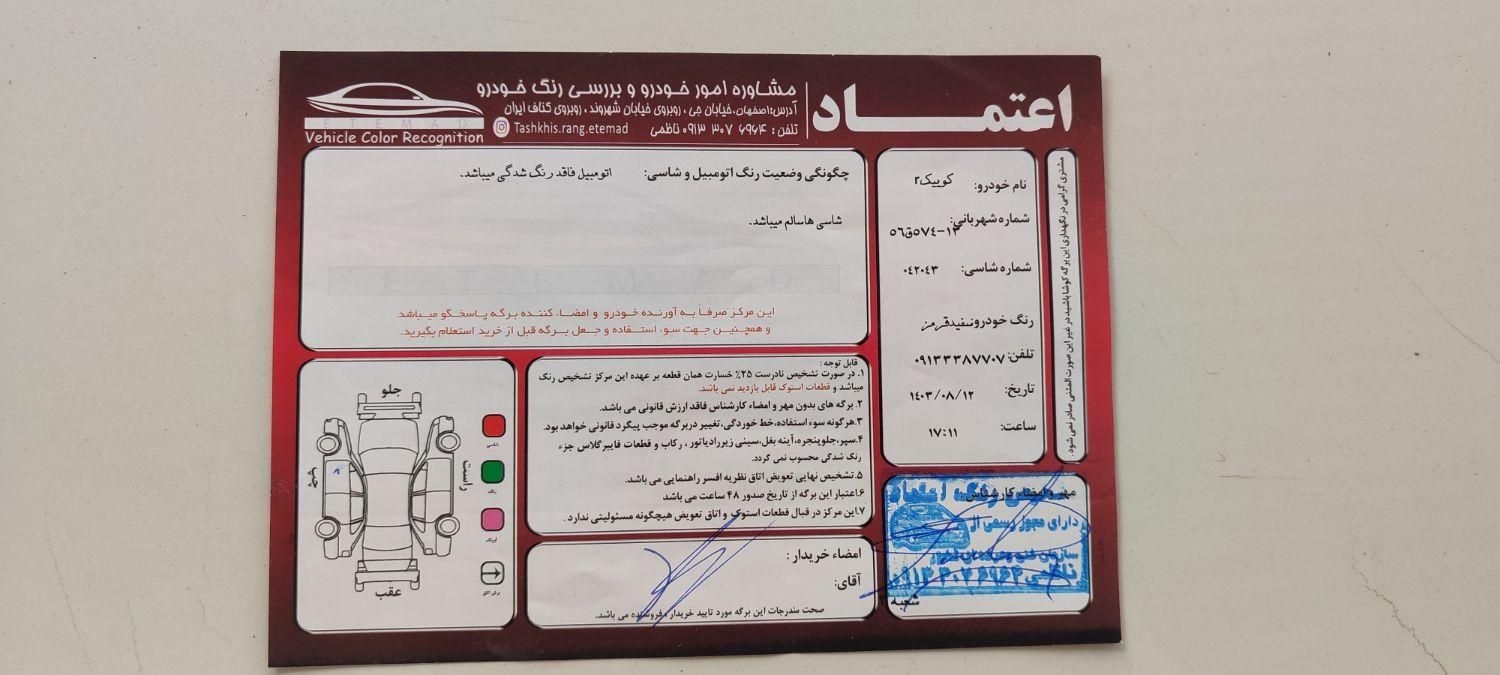 اعتماد
مشاوره امور خودرو و بررسی رنگ خودرو
آدرس:اصفهان،خیابان جی ، روبروی خیابان شهروند ، روبروی کناف ایران
تلفن : ۰۹۱۳ ۳۰۷ ۶۹۶۴ ناظمی
Tashkhis.rang.etemad
ETEMAD
Vehicle Color Recognition
مشتری گرامی در نگهداری این برگه کوشا باشید در غیر این صورت المثنی صادر نمی شود.
نام خودرو: کوییک۲
شماره شهربانی: ۵۷۴-۱۳ق۵۶
شماره شاسی: ۰۴۲۰۴۳
رنگ خودرو: سفیدقرمز
تلفن: ۰۹۱۳۳۳۸۷۷۰۷
تاریخ: ۱۴۰۳/۰۸/۱۲
ساعت: ۱۷:۱۱
چگونگی وضعیت رنگ اتومبیل و شاسی: اتومبیل فاقد رنگ شدگی میباشد.
شاسی ها سالم میباشد.
این مرکز صرفاً به آورنده خودرو و امضاء کننده برگه پاسخگو میباشد
و همچنین جهت سوء استفاده و جعل برگه قبل از خرید استعلام بگیرید.
قابل توجه :
۱. در صورت تشخیص نادرست ۲۵٪ خسارت همان قطعه بر عهده این مرکز تشخیص رنگ
میباشد و قطعات استوک قابل بازدید نمی باشد.
۲. برگه های بدون مهر و امضاء کارشناس فاقد ارزش قانونی می باشد.
۳.هرگونه سوء استفاده،خط خوردگی،تغییر دربرگه موجب پیگرد قانونی خواهد بود.
۴.سپر،جلوپنجره،آینه بغل،سینی زیررادیاتور ، رکاب و قطعات فایبرگلاس جزء
رنگ شدگی محسوب نمی گردد.
۵.تشخیص نهایی تعویض اتاق نظریه افسر راهنمایی می باشد.
۶.اعتبار این برگه از تاریخ صدور ۴۸ ساعت می باشد
۷.این مرکز در قبال قطعات استوک و اتاق تعویض هیچگونه مسئولیتی ندارد .
امضاء خریدار :
آقای:
صحت مندرجات این برگه مورد تایید خریدار ، فروشنده می باشد.
مهر و امضاء کارشناس:
رنگ اعتماد
دارای مجوز رسمی از
ناظمی ۰۹۱۳۳۰۷۶۹۶۴
شعبه
جلو
راست
چپ
عقب
شاسی
رنگ